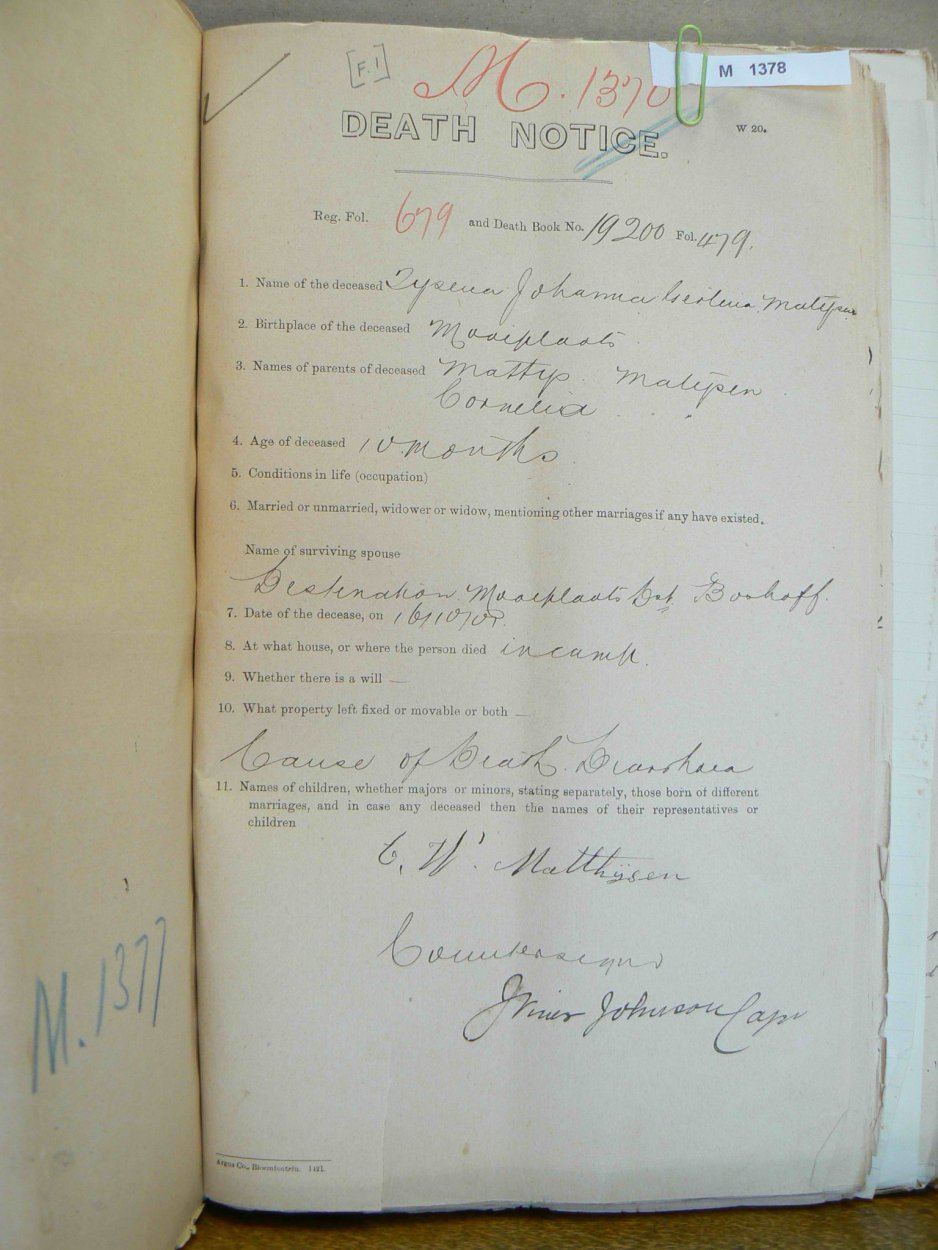 [F.1]
M. 1370
M 1378
DEATH NOTICE.
W 20.
Reg. Fol. 679 and Death Book No. 19200 Fol. 479.
1. Name of the deceased Johanna
2. Birthplace of the deceased Mooiplaats
3. Names of parents of deceased
Cornelia " "
4. Age of deceased 10 months
5. Conditions in life (occupation)
6. Married or unmarried, widower or widow, mentioning other marriages if any have existed.
Name of surviving spouse
Destination. Mooiplaats Dst. Boshoff.
7. Date of the decease, on
8. At what house, or where the person died in camp.
9. Whether there is a will —
10. What property left fixed or movable or both —
Cause of Death. Diarrhoea
11. Names of children, whether majors or minors, stating separately, those born of different
marriages, and in case any deceased then the names of their representatives or
children
C. W. Matthijsen
Countersigned
Johnson Capt
M. 1377
Argus Co., Bloemfontein. 1421.